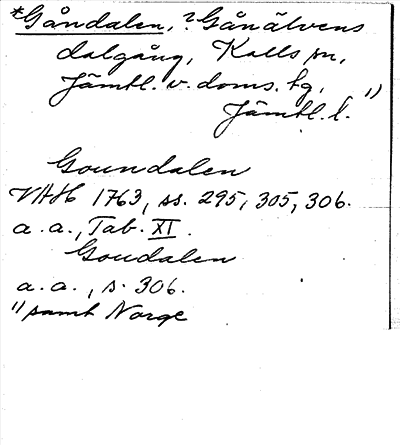 *Gåndalen, ? Gånälvens
dalgång, Kalls sn,
Jämtl. v. doms. tg, 1)
Jämtl. l.
Goundalen
VAH 1763, ss. 295, 305, 306.
a. a., Tab. XI.
Goudalen
a. a., s. 306.
1) samt Norge